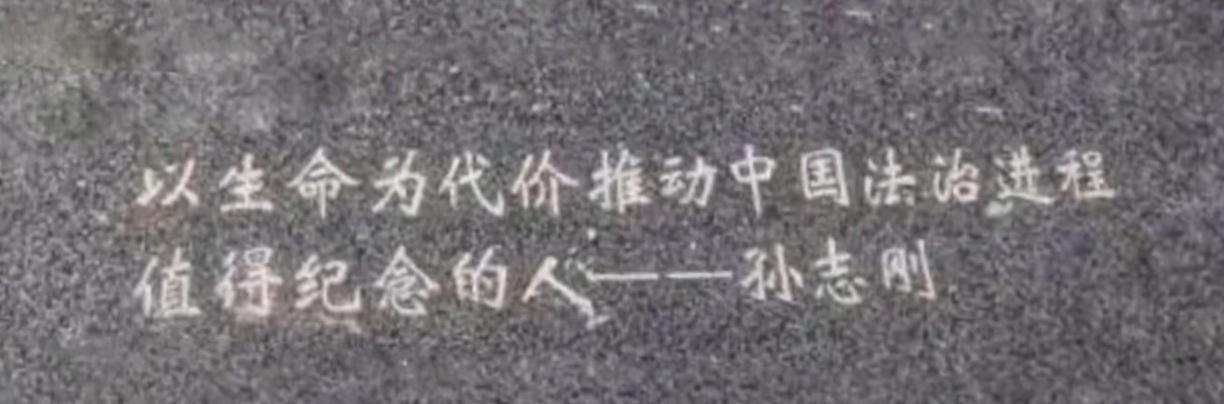 以生命为代价推动中国法治进程
值得纪念的人——孙志刚